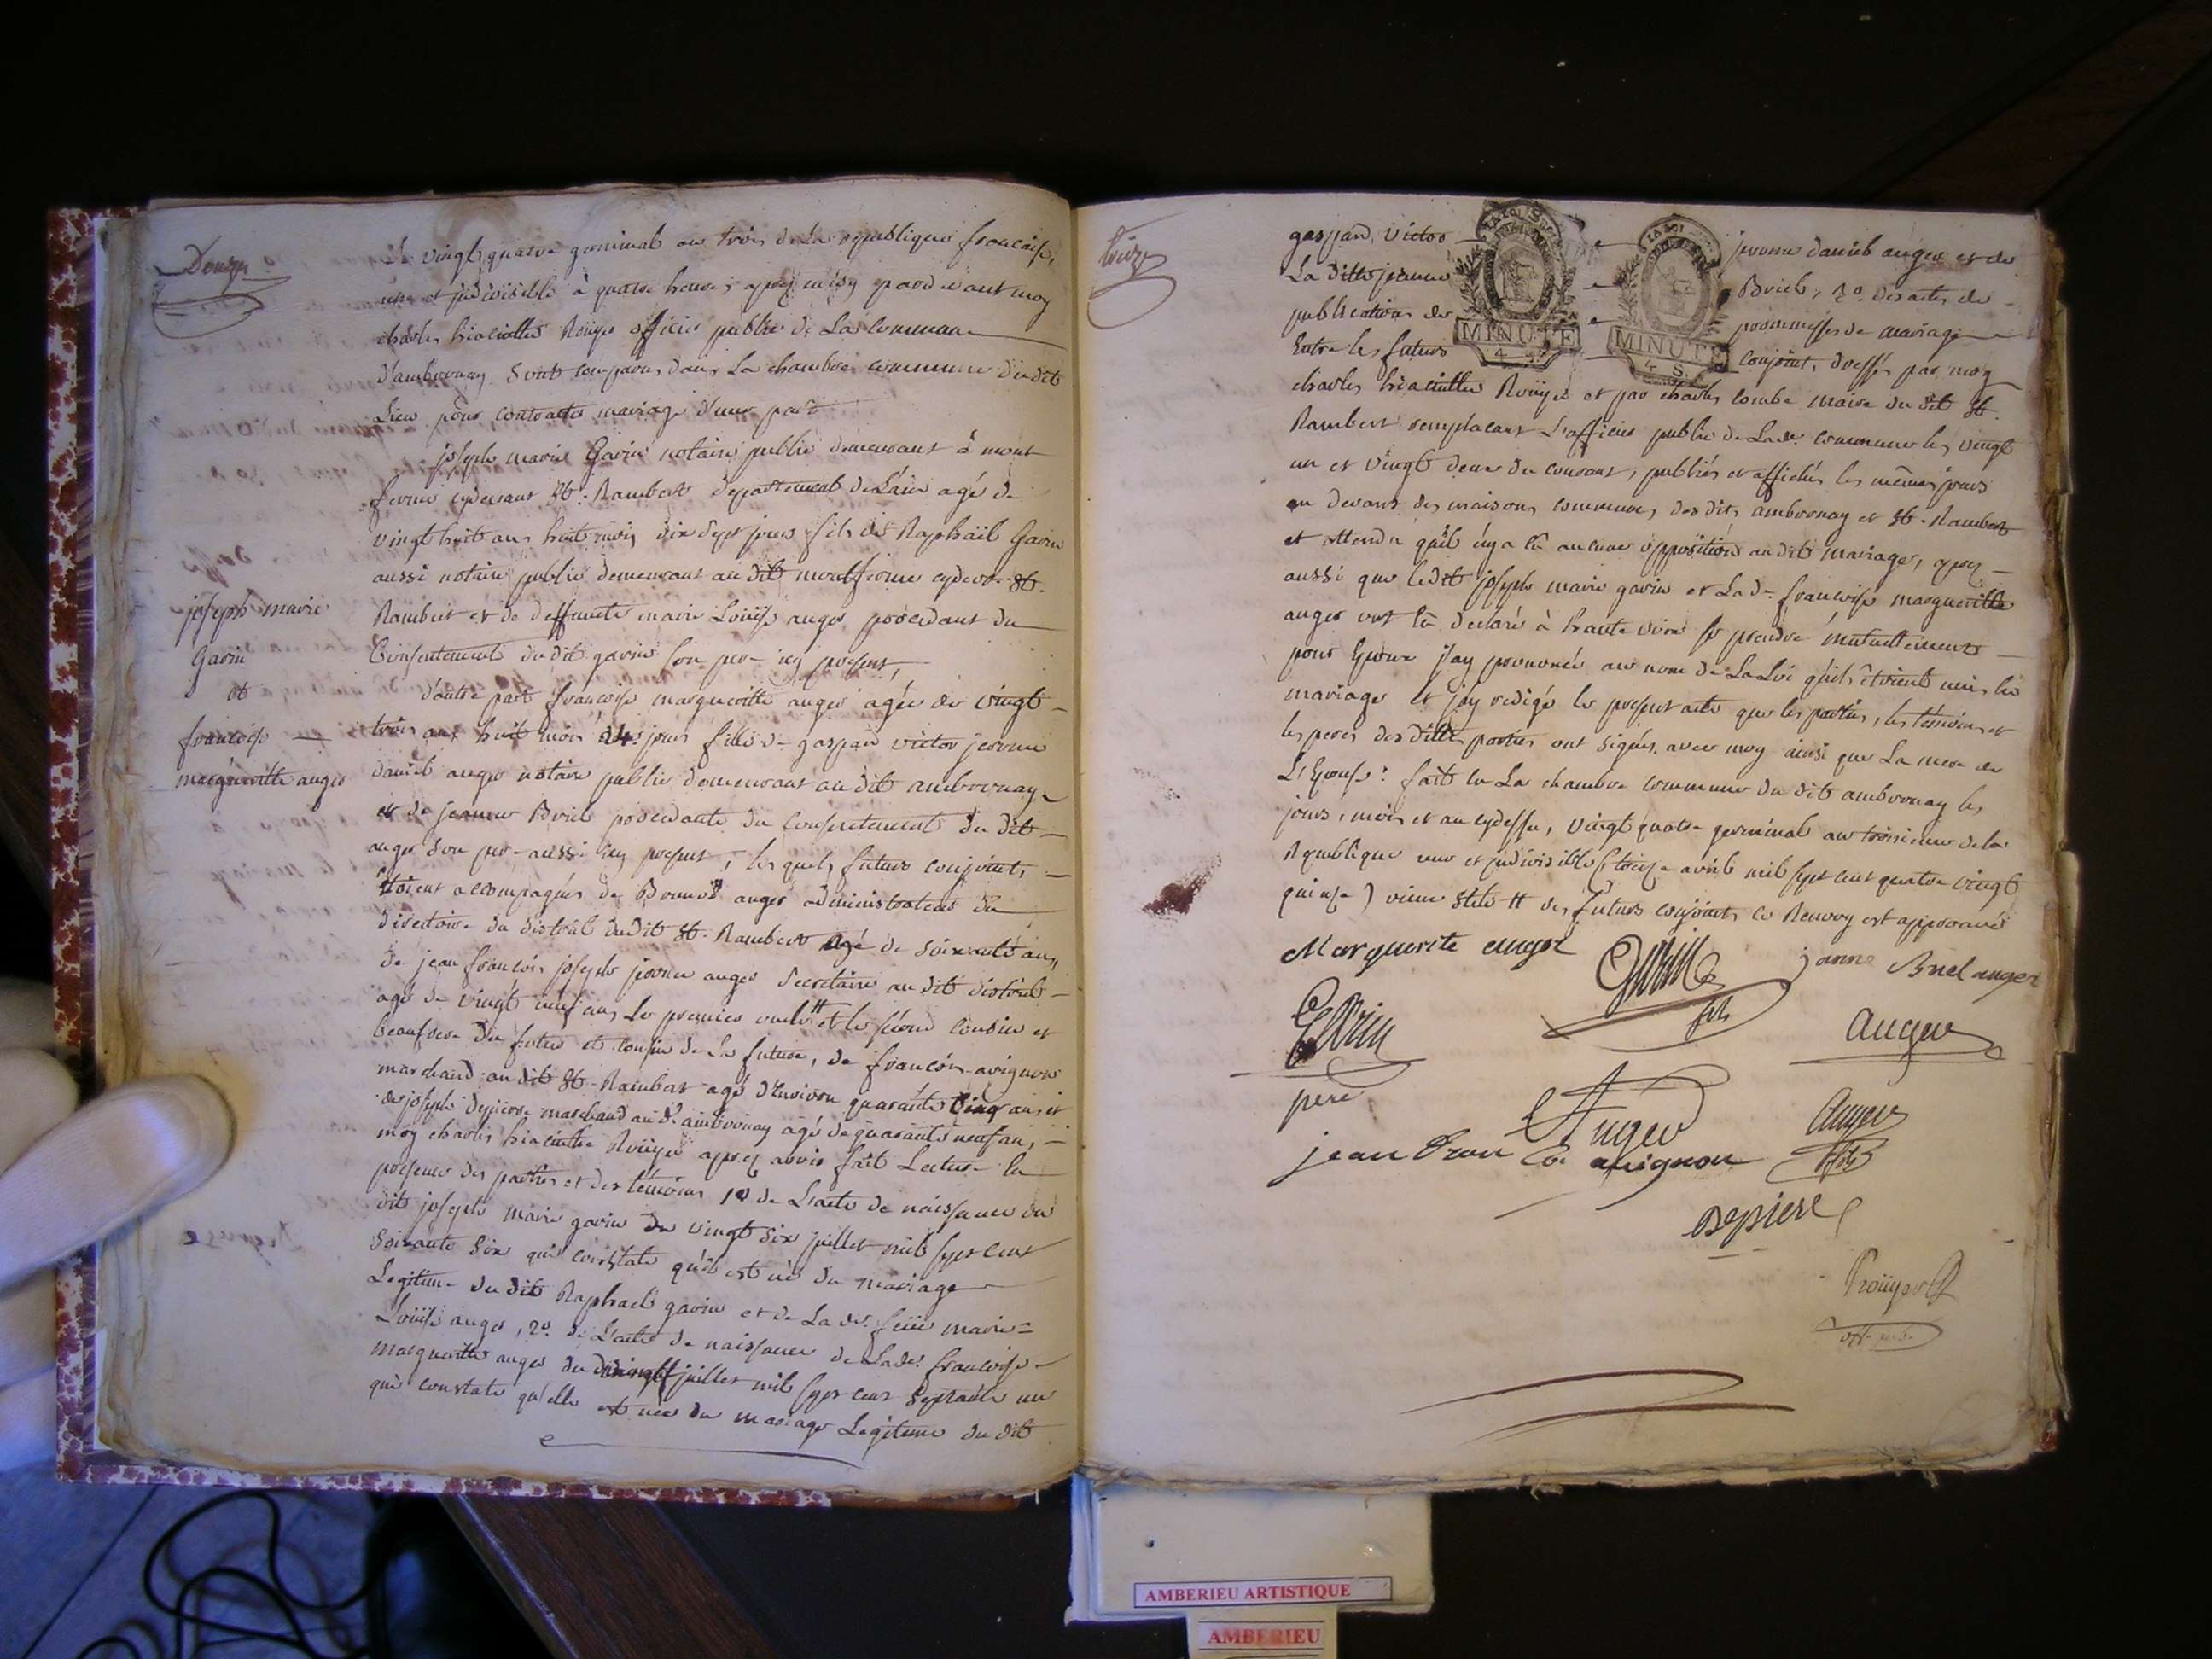 Douze
Le vingt quatre germinal an trois de la republique francaise,
une et indivisible à quatre heures apres midy pardevant moy
charles hiacinthe Rouyer officier public de La Commune
d'ambronay Sont comparus dans La chambre commune du dit
Lieu pour contracter mariage d'une part
joseph marie Gavin notaire public demeurant à mont
ferme cydevant St. Rambert departement de L'ain agé de
vingt huit ans huit mois dix sept jours fils de Raphaël Gavin
aussi notaire public demeurant au dit montferme cydevt St.
Rambert et de deffunte marie Louise auger procedant du
Consentement du dit gavin son pere icy present,
joseph marie
Gavin
et
francoise
margueritte auger
d'autre part francoise margueritte auger agée de vingt
trois ans huit mois 24 jours fille de gaspard victor jerome
daniel auger notaire public demeurant au dit ambronay
et de jeanne Briel procedante du Consentement du dit
auger Son pere aussi icy present, les quels futurs conjoints
étoient accompagnés de Bonnet auger administrateur du
directoire du district du dit St. Rambert agé de soixante ans,
de jean francois joseph jerome auger Secretaire au dit district
agé de vingt neuf ans, Le premier oncle tt et le second cousin et
beaufrere du futur et cousin de La future, de francois avignon
marchand au dit St. Rambert agé d'Environ quarante Cinq ans et
de joseph depierre marchand au dt. ambronay agé de quarante neuf ans,
moy charles hiacinthe Rouyer apres avoir fait Lecture En
presence des parties et des témoins 1º de L'acte de naissance du
dit joseph marie gavin du vingt six juillet mil sept cent
Soixante six qui constate qu'il est né du mariage
Legitime du dit Raphael gavin et de La de. feüe marie
Louise auger, 2º. de L'acte de naissance de Lade. francoise
margueritte auger du juillet mil sept cent Septante un
qui constate qu'elle est née du mariage Legitime du dit
treize
gaspard, victor jerome daniel auger et de
La ditte jeanne Briel, 3º. des actes de
publications de promesses de mariage
Entre les futurs conjoints, dressés par moy
LA LOI
MINUTE
4 S.
LA LOI
MINUTE
4 S.
charles hiacinthe Rouyer et par charles combe maire du dit St.
Rambert remplacant L'officier public de Lade commune les vingt
un et vingt deux du courant, publiés et affichés les mêmes jours
au devant des maisons communes des dits ambronay et St. Rambert
et attendu qu'il n'y a eû aucune opposition au dit mariage, apres
aussi que le dit joseph marie gavin et La de. francoise margueritte
auger ont eû declaré à haute voix se prendre mutuellement
pour Epoux j'ay prononcé au nom de La Loi qu'ils étoient unis En
mariage et j'ay redigé le present acte que les parties, les témoins et
les peres des dittes parties ont signés avec moy ainsi que La mere de
L'Epouse. fait En La chambre commune du dit ambronay les
jours, mois et an cydessus, vingt quatre germinal an troisieme de la
Republique une et indivisible (treize avril mil sept cent quatre vingt
quinze) vieux stile tt des futurs conjoints ce Renvoy est approuvé
Marguerite auger
Gavin
fils
janne Briel auger
Gavin
pere
auger
Auger
Auger
fils
jean Fran Coi avignon
Depiere
Rouyer
off. pub.
AMBERIEU ARTISTIQUE
AMBERIEU